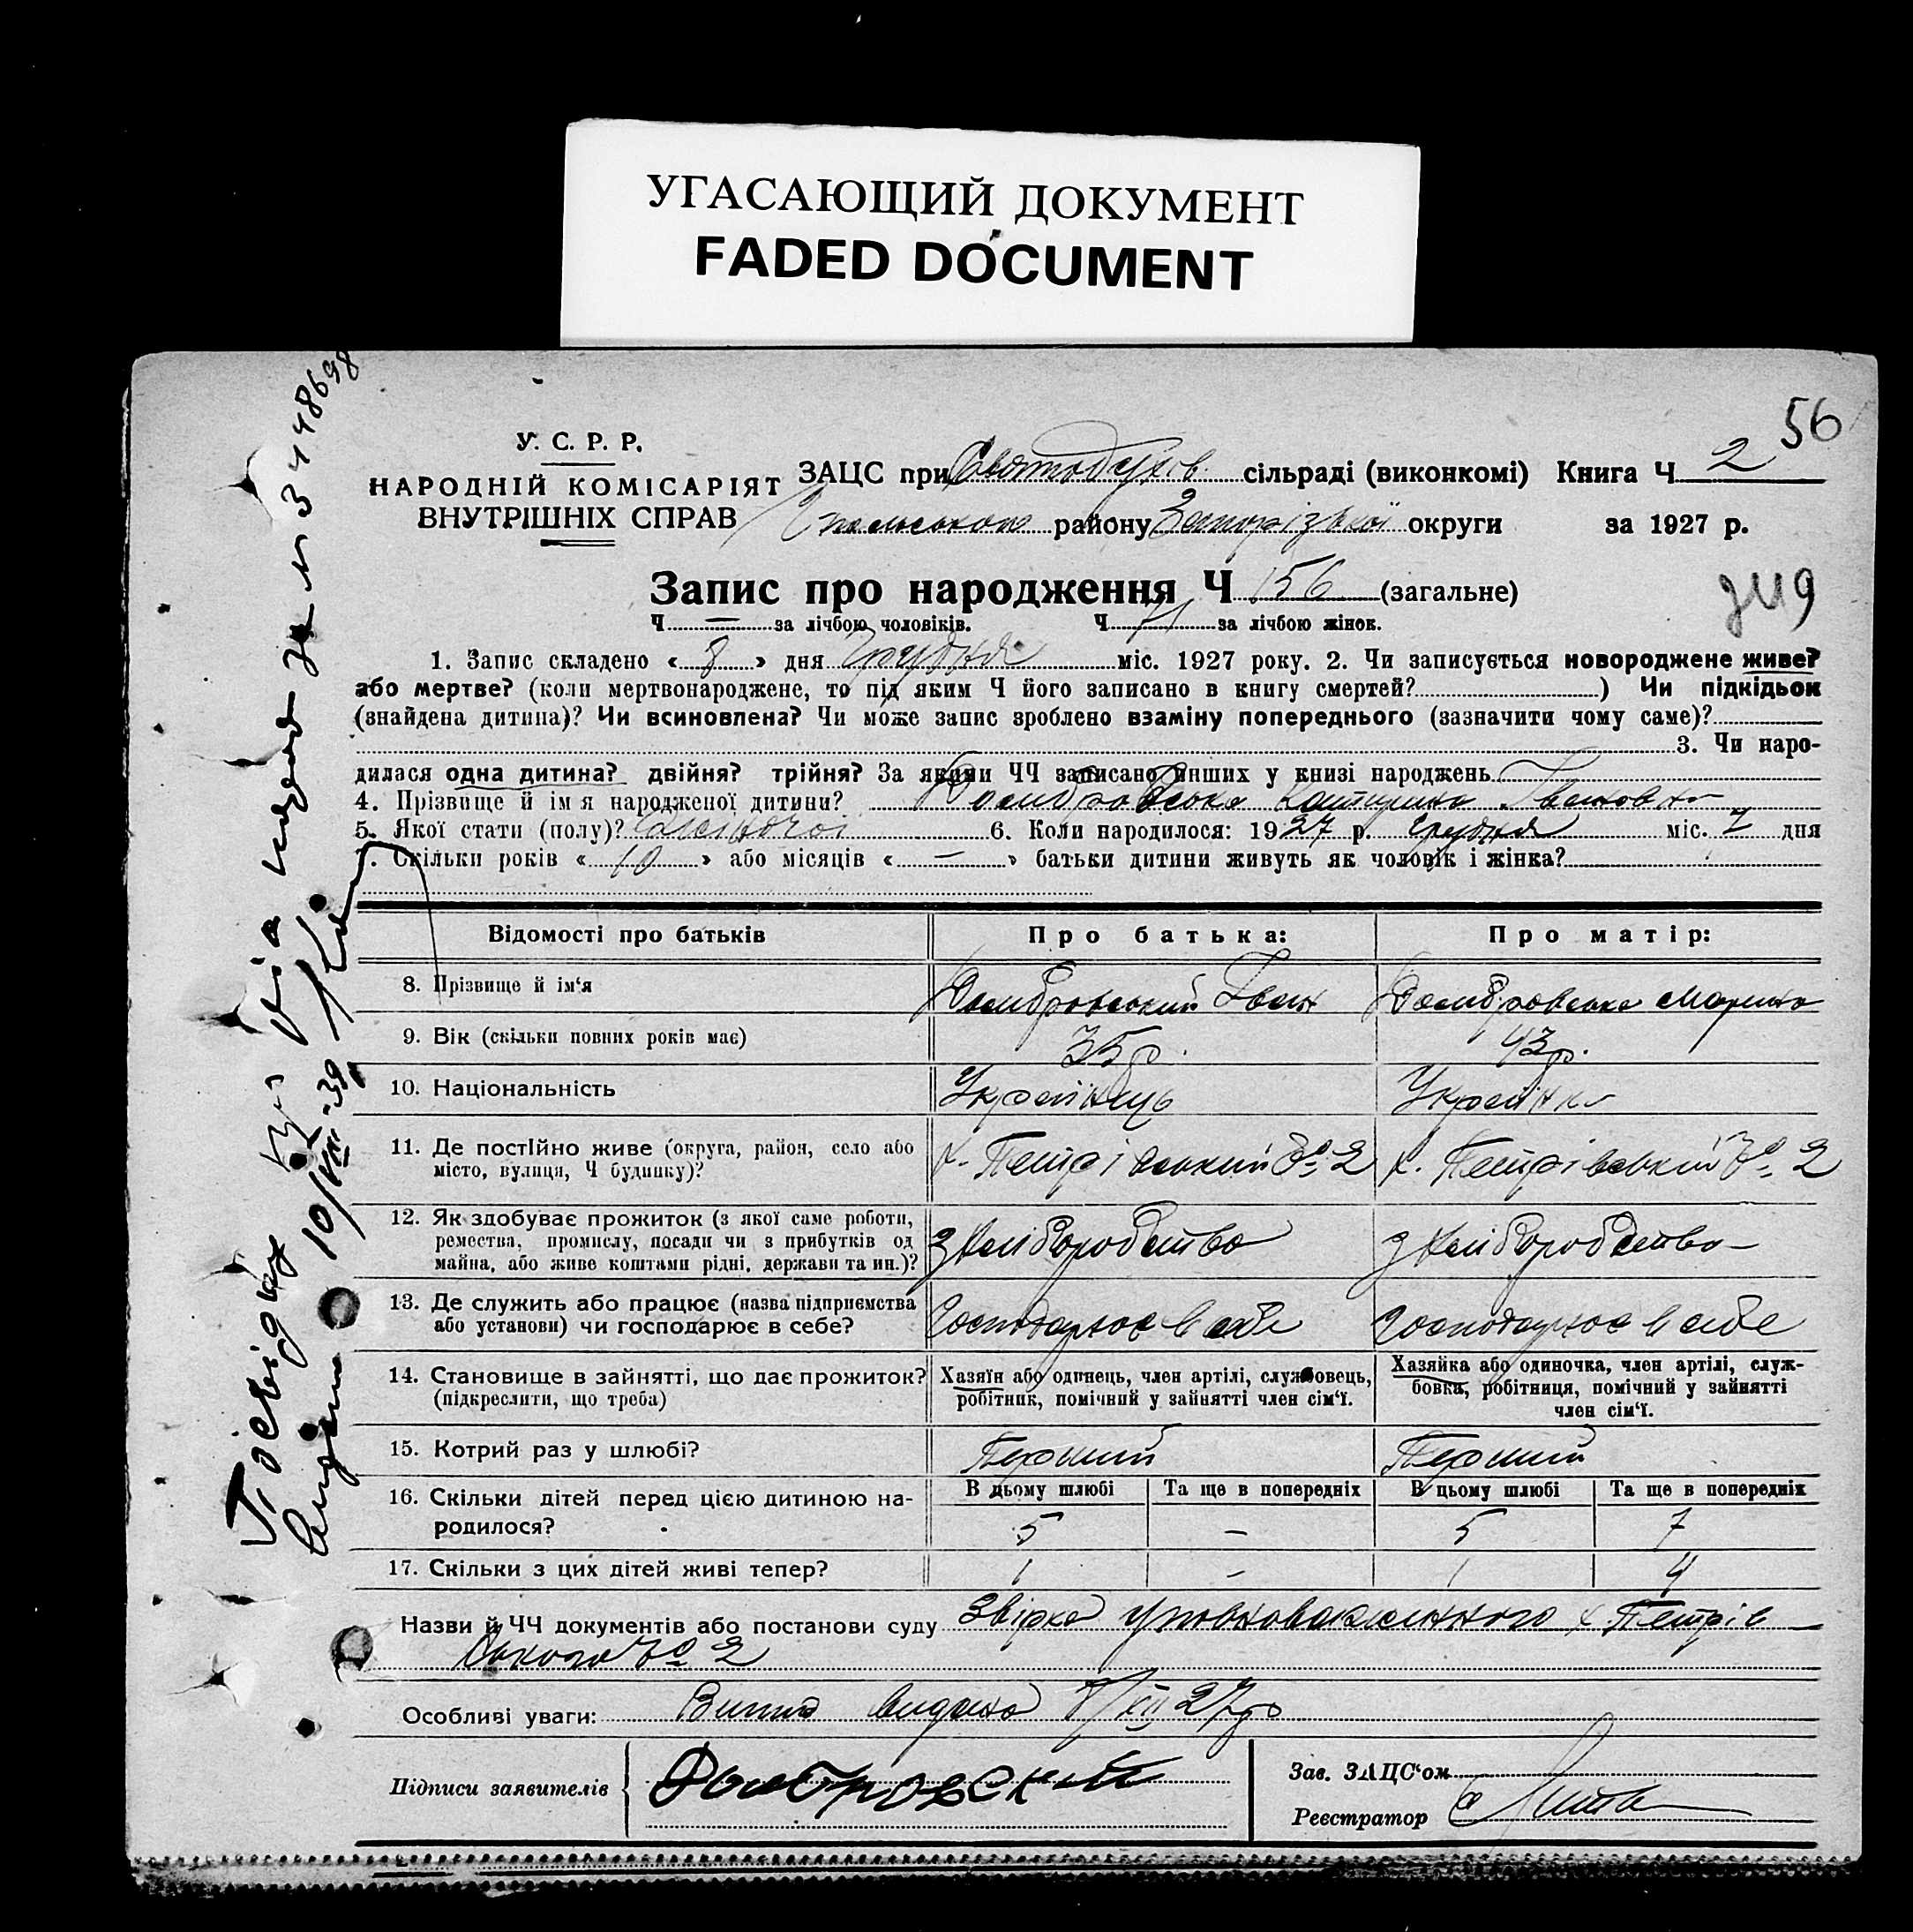 УГАСАЮЩИЙ ДОКУМЕНТ
FADED DOCUMENT
56
У. С. Р. Р.
НАРОДНІЙ КОМІСАРІЯТ
ВНУТРІШНІХ СПРАВ
ЗАЦС при Святодухів. сільраді (виконкомі) Книга Ч 2
району Запорізької округи за 1927 р.
Запис про народження Ч 156 (загальне)
Ч — за лічбою чоловіків. Ч 71 за лічбою жінок.
1. Запис складено « 8 » дня Грудня міс. 1927 року. 2. Чи записується новороджене живе?
або мертве? (коли мертвонароджене, то під яким Ч його записано в книгу смертей?) Чи підкідьок
(знайдена дитина)? Чи всиновлена? Чи може запис зроблено взаміну попереднього (зазначити чому саме)?
3. Чи наро-
дилася одна дитина? двійня? трійня? За якими ЧЧ записано инших у книзі народжень
4. Прізвище й імя народженої дитини? Домбровська Катирина Івановна
5. Якої стати (полу)? Жіночої 6. Коли народилося: 1927 р. Грудня міс. 7 дня
7. Скільки років « 10 » або місяців « — » батьки дитини живуть як чоловік і жінка?
Відомості про батьків Про батька: Про матір:
8. Прізвище й ім'я Домбровський Іван Домбровська Марина
9. Вік (скільки повних років має) 35 р. 43 р.
10. Національність Українець Українка
11. Де постійно живе (округа, район, село або
місто, вулиця, Ч будинку)? х. Петрівський № 2 х. Петрівський № 2
12. Як здобуває прожиток (з якої саме роботи,
ремества, промислу, посади чи з прибутків од
майна, або живе коштами рідні, держави та ин.)? з Хліборобства з Хліборобства
13. Де служить або працює (назва підприємства
або установи) чи господарює в себе? Господарює в себе Господарює в себе
14. Становище в зайнятті, що дає прожиток?
(підкреслити, що треба)
Хазяїн або одинець, член артілі, службовець,
робітник, помічний у зайнятті член сім'ї.
Хазяйка або одиночка, член артілі, служ-
бовка, робітниця, помічний у зайнятті
член сім'ї.
15. Котрий раз у шлюбі? Перший Перший
В цьому шлюбі Та ще в попередніх В цьому шлюбі Та ще в попередніх
16. Скільки дітей перед цією дитиною на-
родилося? 5 – 5 7
17. Скільки з цих дітей живі тепер? 1 – 1 4
Назви й ЧЧ документів або постанови суду Звірка уповноваженного х. Петрів
ського № 2
Особливі уваги: видана 8/XII 27 р
Підписи заявителів Домбровский
Зав. ЗАЦС'ом
Реєстратор